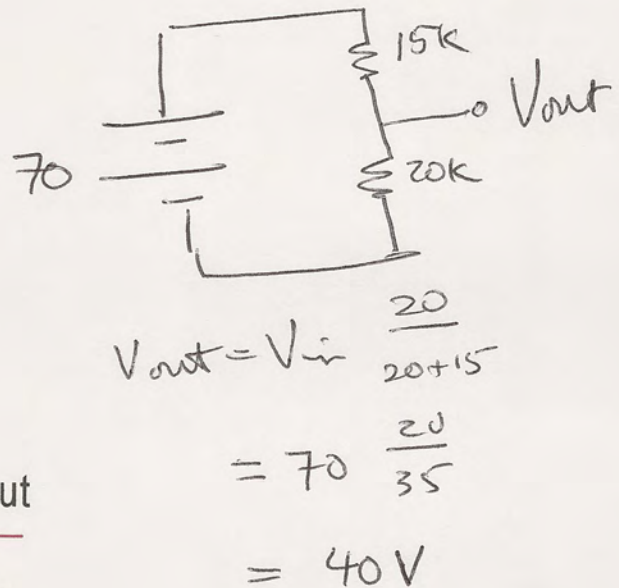 15K
Vout
70
20K
Vout = Vin 20/20+15
= 70 20/35
ut
= 40V